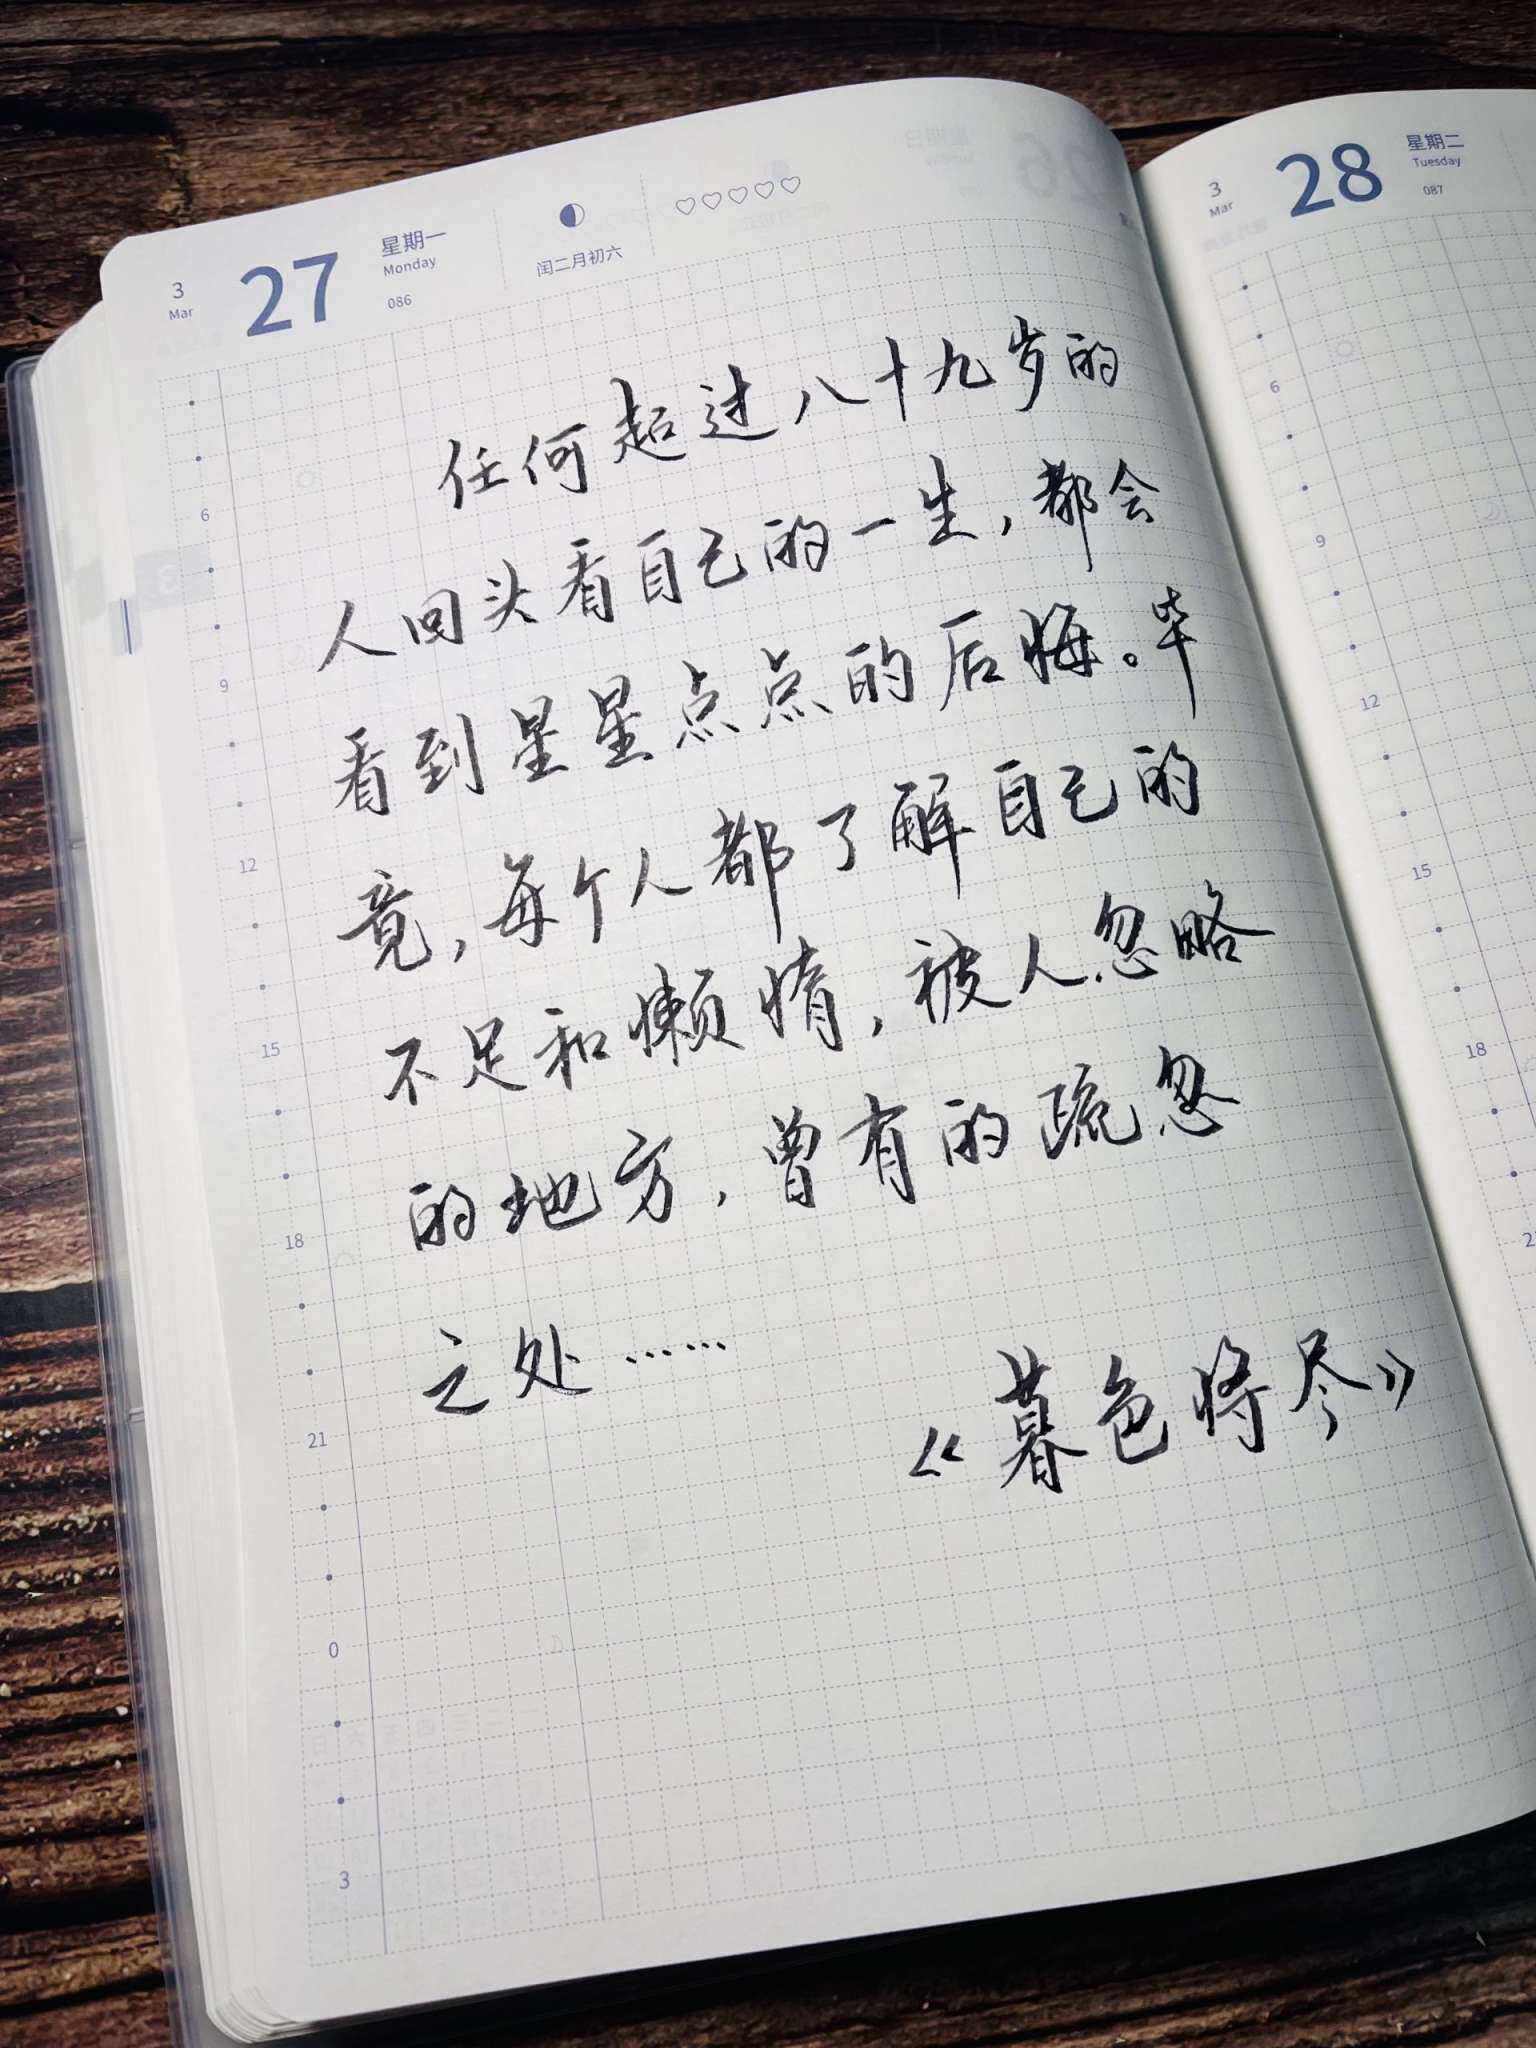 3
Mar
27
星期一
Monday
086
闰二月初六
任何超过八十九岁的
人回头看自己的一生，都会
看到星星点点的后悔。毕
竟，每个人都了解自己的
不足和懒惰，被人忽略
的地方，曾有的疏忽
之处……
《暮色将尽》
6
9
12
15
18
21
0
3
3
Mar
28
星期二
Tuesday
087
6
9
12
15
18